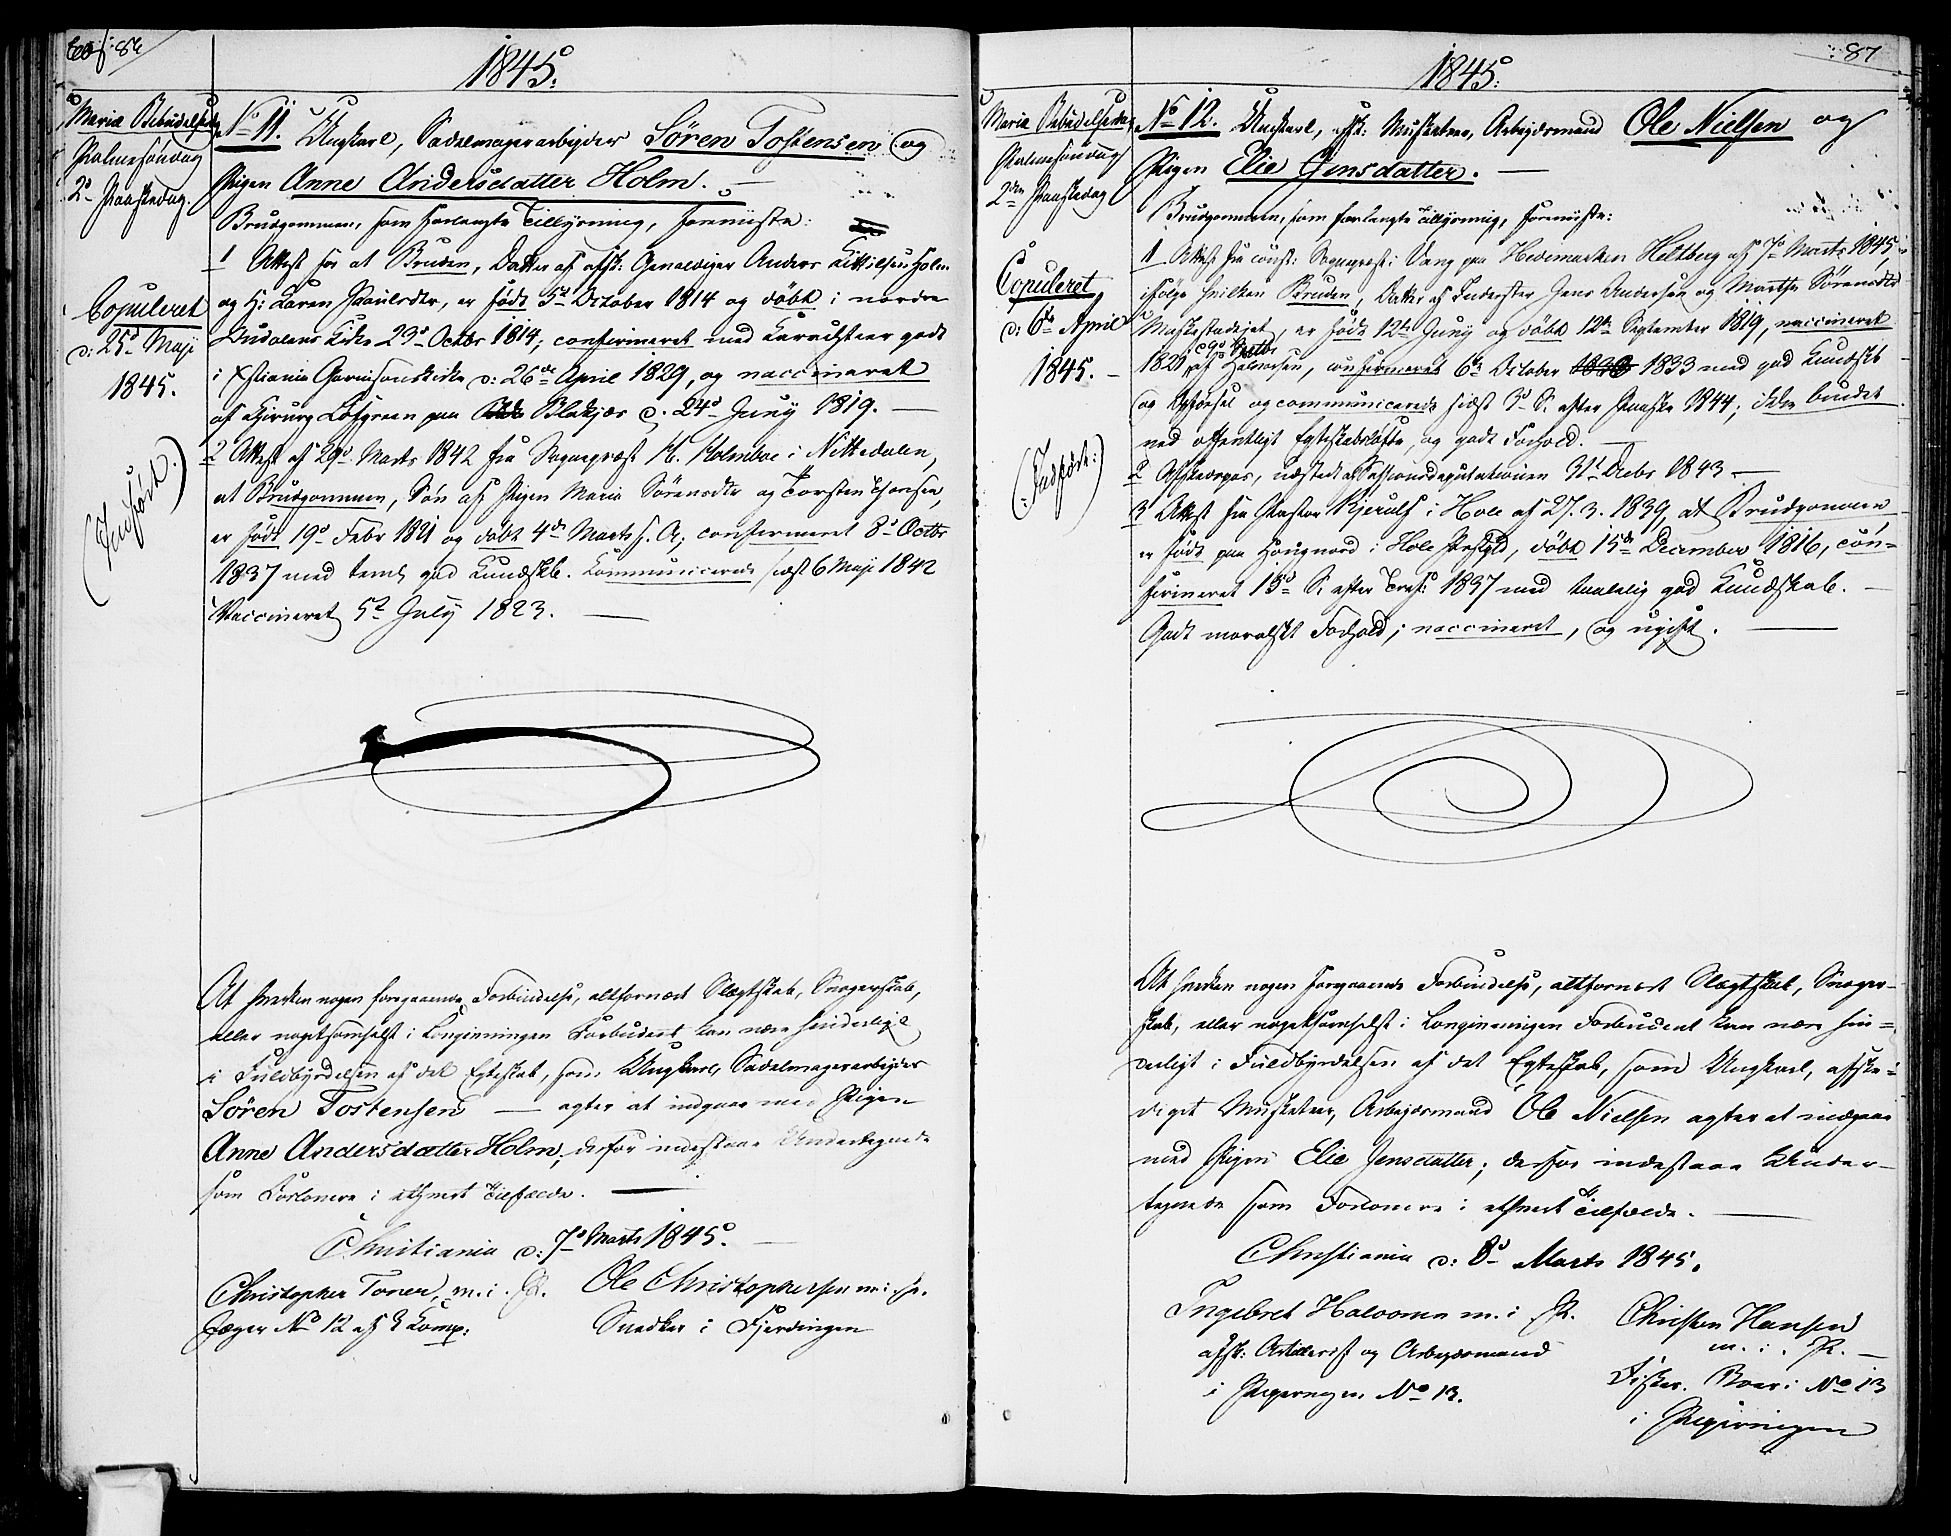 86
1845.
Mariæ Bebudelsesdag
Palmesøndag
2d Paaskedag.
Copuleret
d: 25d Maji
1845.
(Indført.)
No 11. Ungkarl, Sadelmagerarbeider Søren Tostensen og
Pigen Anne Andersdatter Holm. —
Brudgommen, som forlangte Tillysning, foreviiste:
1 Attest for at Bruden, Datter af afsk: Gevaldiger Anders Kittilsen Holm
og H: Karen Paulsdtr, er født 5d October 1814 og døbt i nordre
Kirke 23d Octbr 1814; confirmeret med Karakteer godt
i Xstiania Garnisonskirke d: 26de April 1829, og vaccineret
af Chirurg Løfgreen paa Blakjer d. 24d Juny 1819. —
2 Attest af 29d Marts 1842 fra Sognepræst H. Holmboe i Nittedalen,
at Brudgommen, Søn af Pigen Maria Sørensdtr og Torsten
er født 19d Febr 1821 og døbt 4de Marts s. A; confirmeret 8d Octbr
1837 med teml. god Kundskb. Kommunicerede sidst 6 Maji 1842
Vaccineret 5t July 1823. —
At hverken nogen foregaaende Forbindelse, altfornært Slægtskab, Svogerskab,
eller nogetsomhelst i Lovgivningen Forbudent kan være hinderligt
i Fuldbyrdelsen af det Egteskab, som Ungkarl, Sadelmagerarbeider
Søren Tostensen — agter at indgaae med Pigen
Anne Andersdatter Holm; derfor indestaae Undertegnede
som Forlovere i ethvert Tilfælde. —
Christiania d: 7d Marts 1845. —
Christopher Toner, m. i. P. Ole Christophersen m: i P.
Jæger No 12 af Komp: Snedker i Fjerdingen
87
1845.
Mariæ Bebudelsesdag
Palmesøndag
2den Paaskedag
Copuleret
d: 6te April
1845. —
(: Indført :)
No 12. Ungkarl, afsk: Musketeer, Arbejdsmand Ole Nielsen og
Pigen Elie Jensdatter. —
Brudgommen, som forlangte Tillysning, foreviiste:
1 Attest fra const: Sognepræst i Vang paa Hedemarken Heltberg af 7d Marts 1845
ifølge hvilken Bruden, Datter af Inderster Jens Andersen og Marthe Sørensdtr
er født 12te Juny og døbt 12te September 1819, vaccineret
1821 af Halvorsen, confirmeret 6te October 1833 med god Kundskb
og Opførsel og communicerede sidst 3d S. efter Paaske 1844; ikke bundet
ved offentligt Egteskabsløfte, og godt Forhold. —
2 Afskedspas, udstedt af Sessionsdeputationen 31t Decbr 1843 —
3 Attest fra Pastor Kjerulf i Hole af 27. 3. 1839, at Brudgommen
er født paa i Hole Prstgjld, døbt 15de December 1816, con-
firmeret 15d S. efter Tref: 1837 med taalelig god Kundskab. —
Godt moralskt Forhold; vaccineret, og ugift. —
At hverken nogen foregaaende Forbindelse, altfornært Slægtskab, Svoger-
skab, eller nogetsomhelst i Lovgivningen Forbudent kan være hin-
derligt i Fuldbyrdelsen af det Egteskab, som Ungkarl, afske-
diget Musketeer, Arbejdsmand Ole Nielsen agter at indgaae
med Pigen Elie Jensdatter; derfor indestaae Under-
tegnede som Forlovere i ethvert Tilfælde. —
Christiania d: 8d Marts 1845.
Ingebret Halvorsen m. i P. Christen Hansen
m. i. P. —
afsk: Artillerist og Arbejdsmand
i Pipervigen No 13. Fisker. Boer i No 13
i Pipervigen